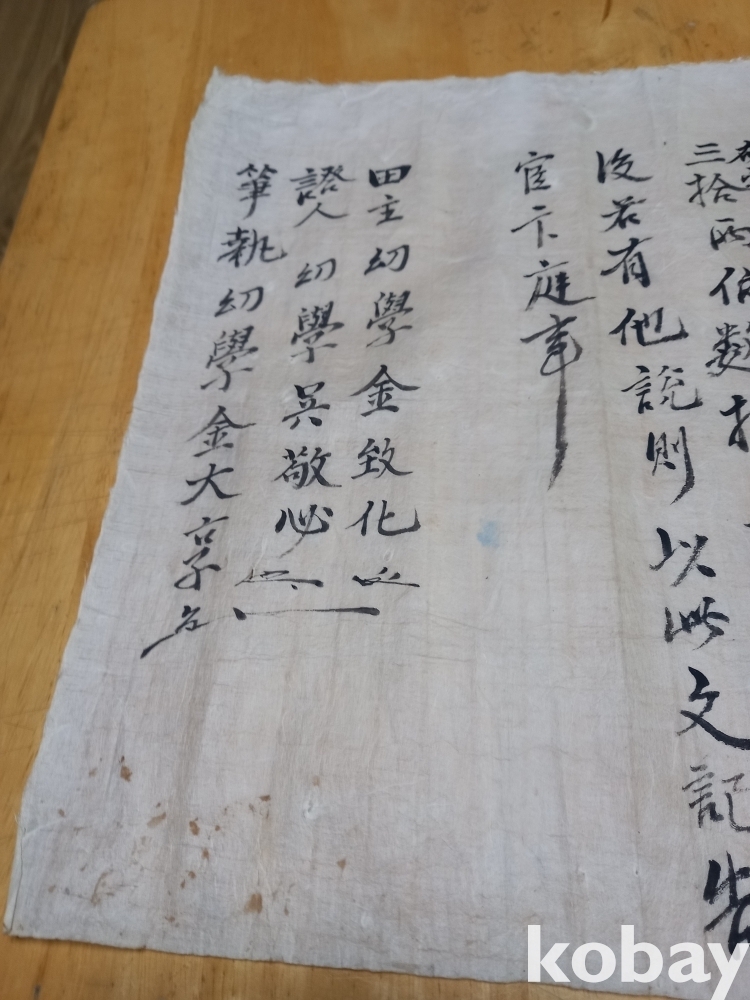 三拾兩依数
後若有他說則以此文記告
官卞庭事
田主幼學金致化
證人幼學吳敬必
筆執幼學金大享
kobay